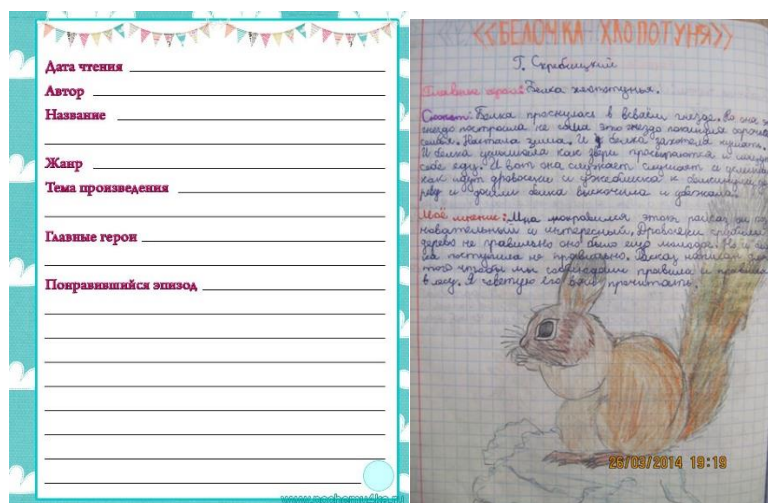 Дата чтения
Автор
Название
Жанр
Тема произведения
Главные герои
Понравившийся эпизод
www.pochemu4ka.ru
«БЕЛОЧКА ХЛОПОТУНЯ»
Г. Скребицкий
Главные герои: Белка хлопотунья.
Сюжет: Белка проснулась в
гнезде. Но она
гнездо построила не сама это гнездо
Настала зима. И белка захотела кушать.
И белка услышала как звери просыпаются и
себе еду. И вот она слушает слушает и
как идут дровосеки и к
и белка выскочила и убежала.
Моё мнение: Мне понравился этот рассказ он
и интересный. Дровосеки срубили
дерево не правильно оно было ещё молодое. Но и
поступила не правильно. Рассказ написан для
того чтобы мы соблюдали правила и
в лесу. Я советую его вам прочитать.
26/03/2014 19:19